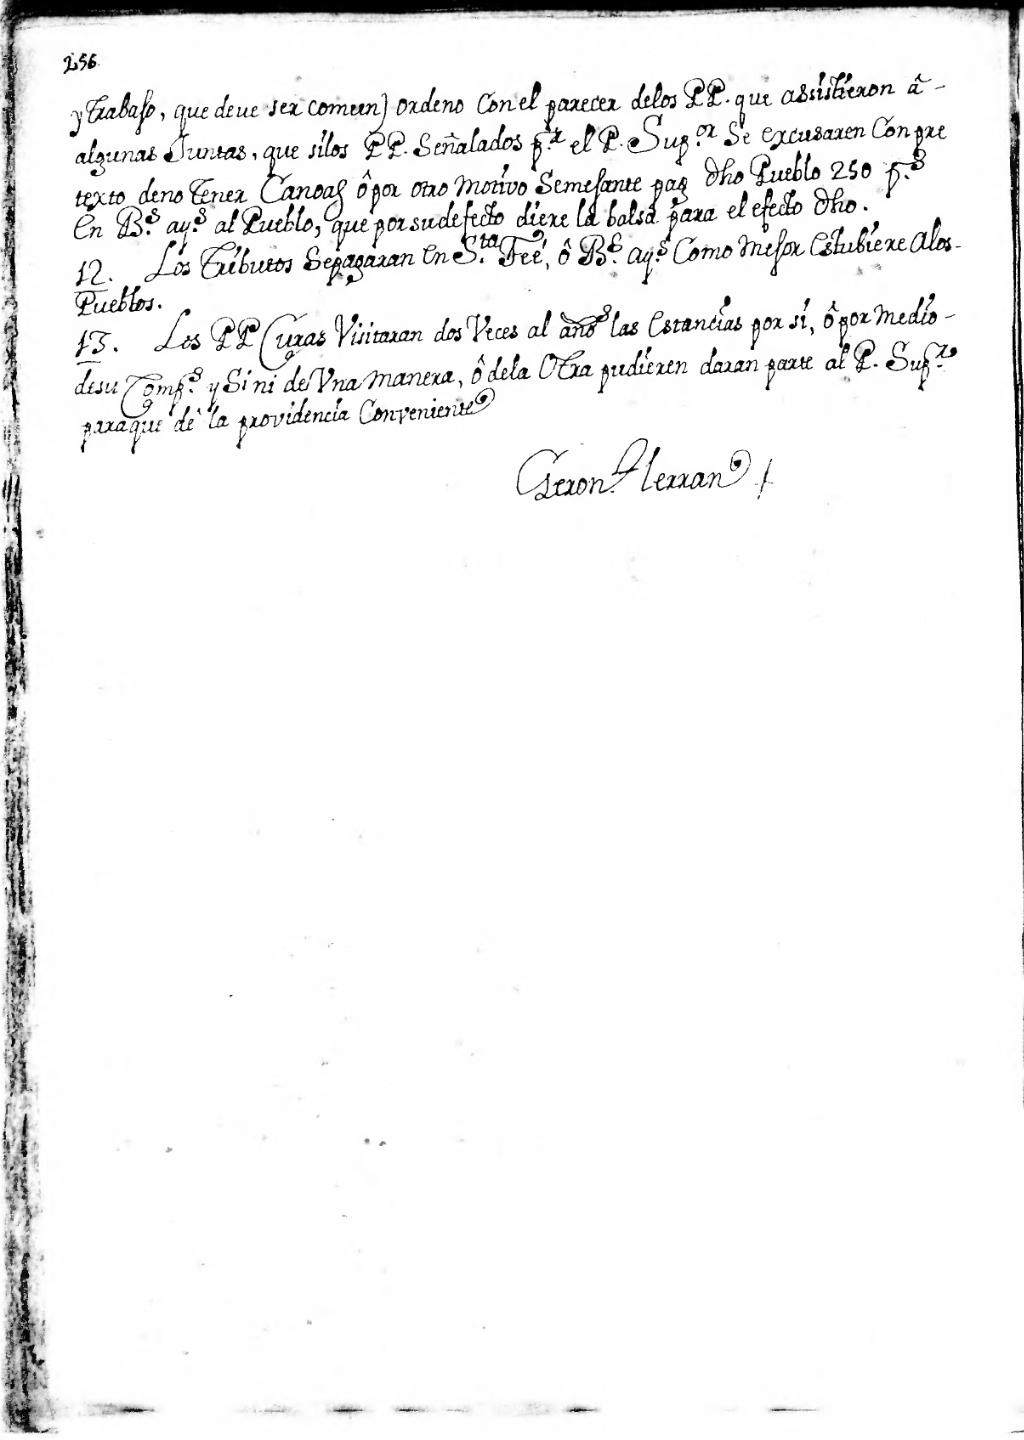 256
y trabajo, que deve ser comun) ordeno con el parecer delos PP. que asistieron â -
algunas Juntas, que silos PP. Señalados p.r el P. Sup.or Se excusaren Con pre
texto deno tener Canoas ô por otro motivo Semejante pag dho Pueblo 250 p.s
En B.s ay.s al Pueblo, que porsudefecto diere la balsa para el efecto dho.
12. Los Tributos Sepagaran En S.ta Feé, ô B.s ay.s Como mejor Estubiere Alos-
Pueblos.
13. Los PP Curas Visitaran dos Veces al año las Estancias por sí, ô por medio -
desu Comp.o y Si ni de Vna manera, ô dela Otra pudieren daran parte al P. Sup.r
paraque dê la providencia Conveniente
Geron.o Herran